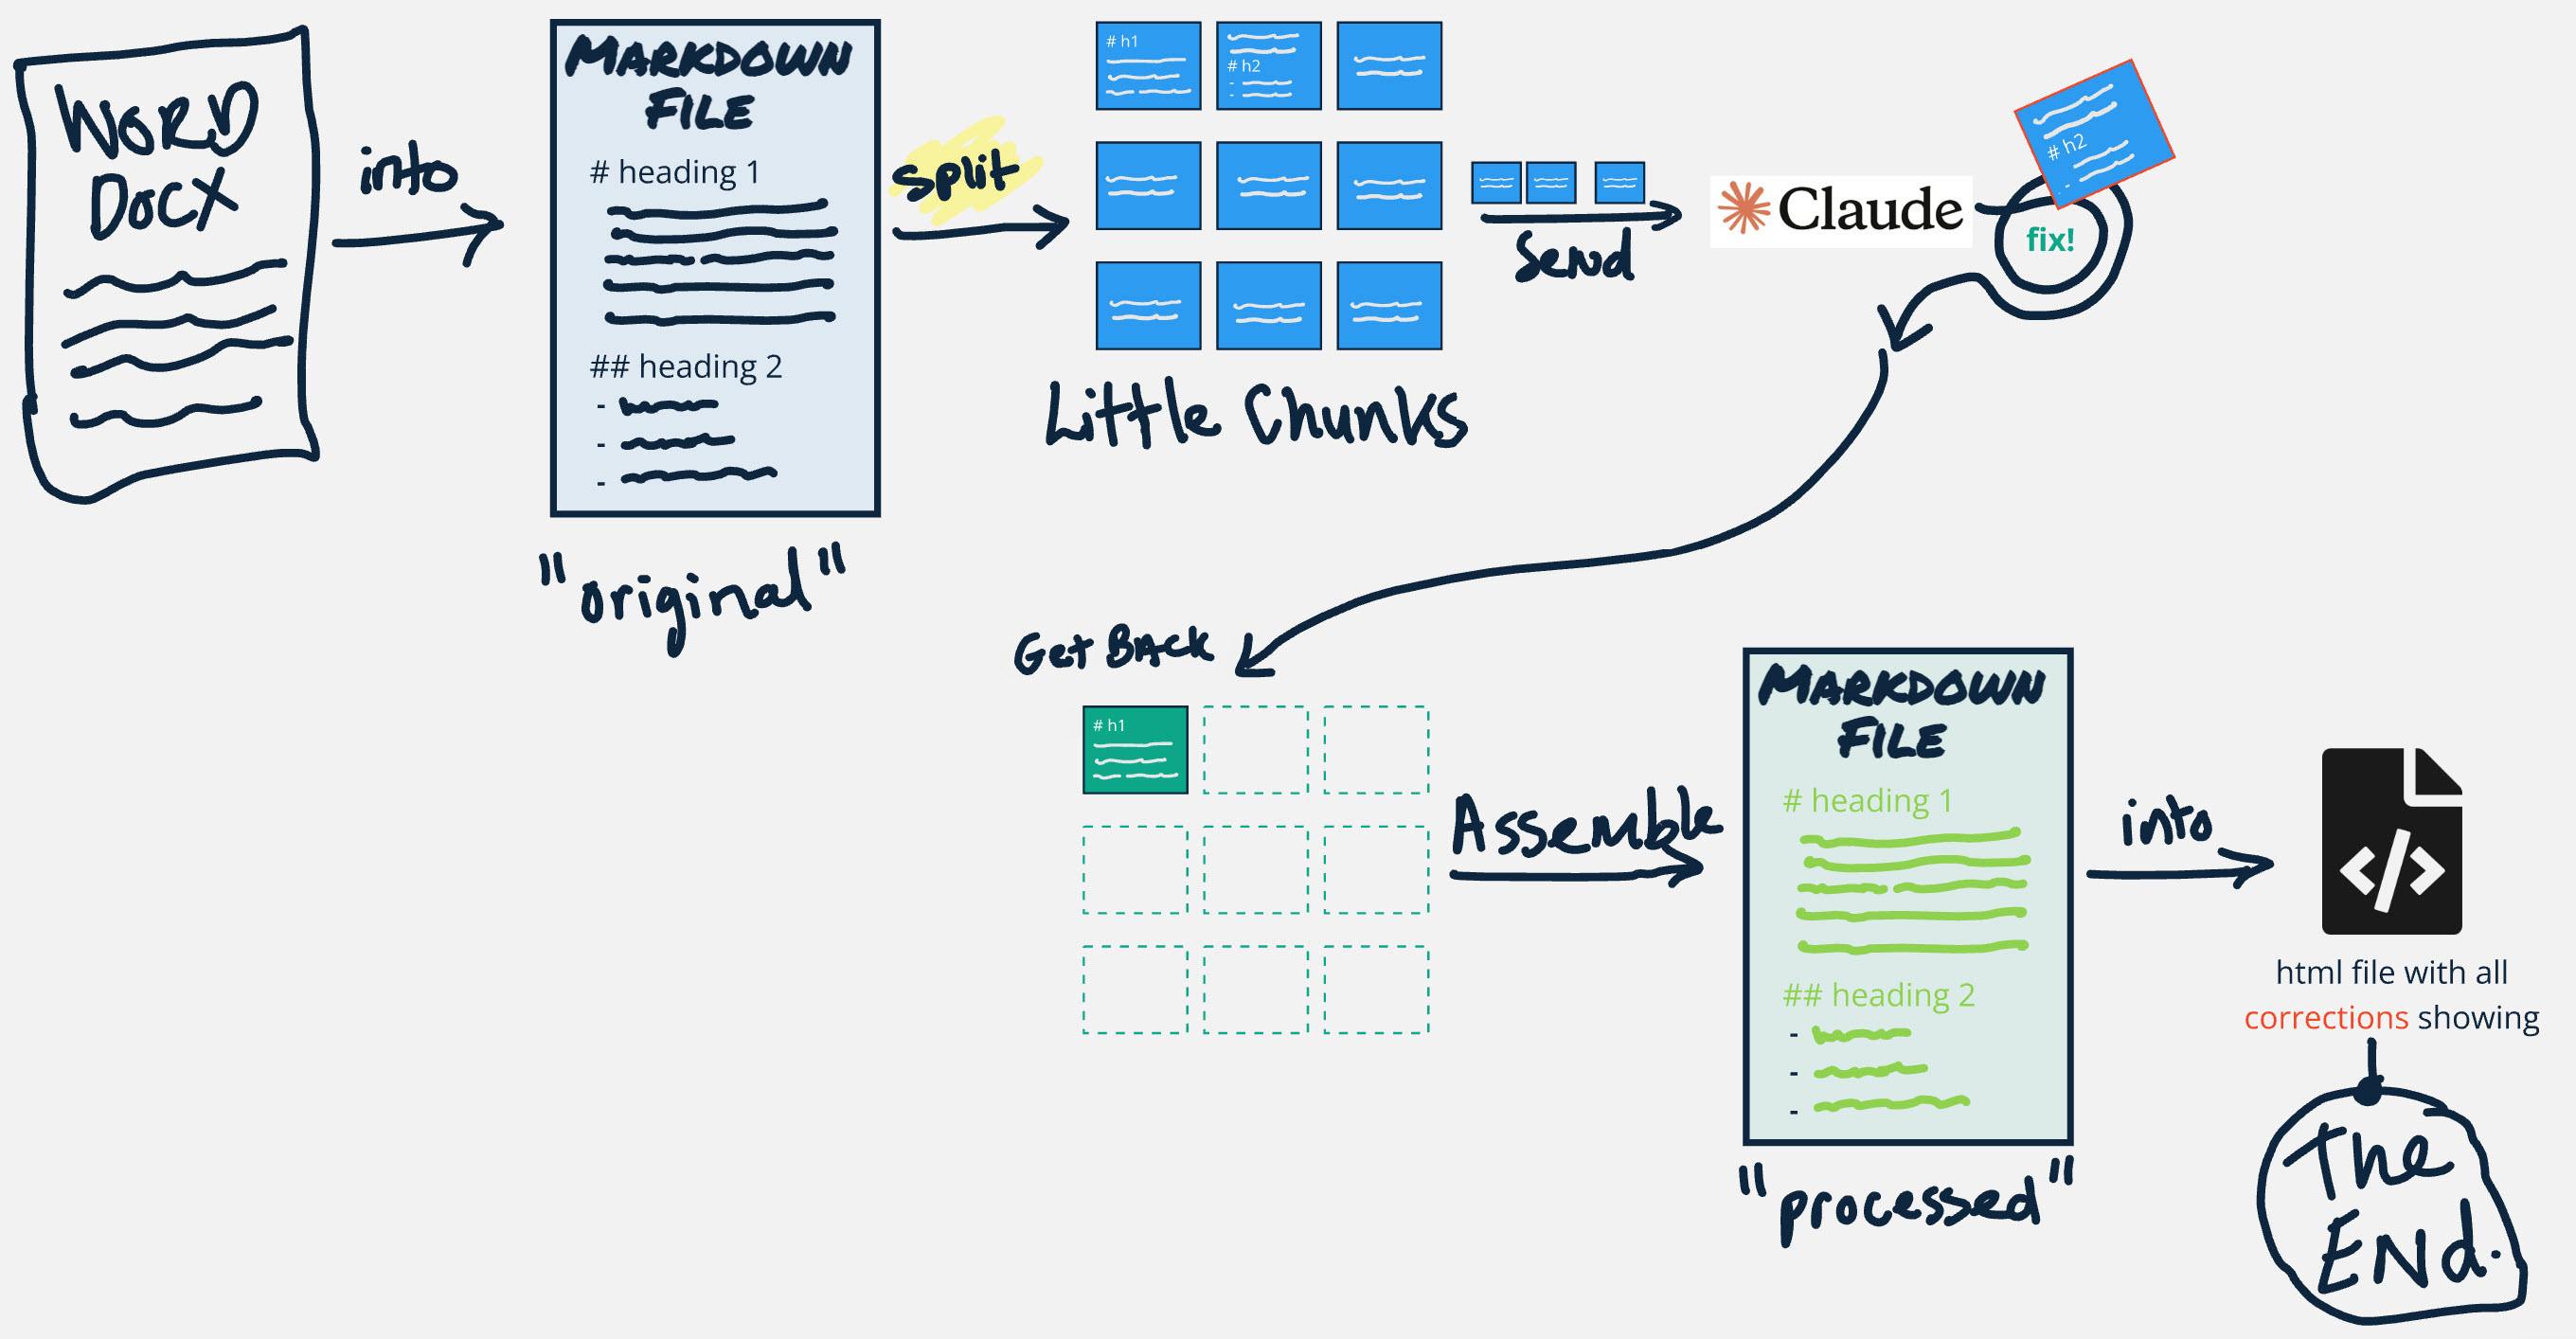 WORD
DOCX
into
MARKDOWN
FILE
# heading 1
## heading 2
-
-
-
"original"
split
# h1
# h2
-
-
Little Chunks
Send
Claude
# h2
-
-
fix!
Get BACK
# h1
Assemble
MARKDOWN
FILE
# heading 1
## heading 2
-
-
-
"processed"
into
</>
html file with all
corrections showing
The
END.